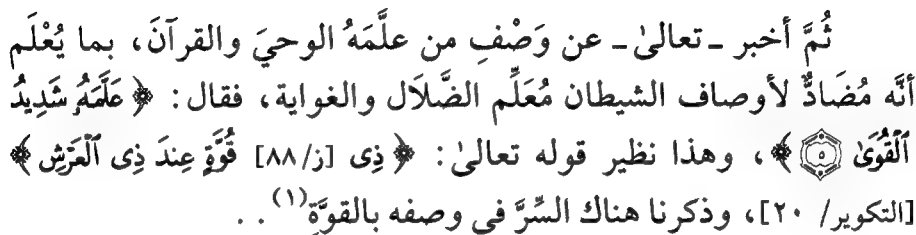 ثُمَّ أخبر ـ تعالىٰ ـ عن وَصْفِ من علَّمَهُ الوحيَ والقرآنَ، بما يُعْلَم
أنَّه مُضَادٌّ لأوصاف الشيطان مُعَلِّم الضَّلَال والغواية، فقال: ﴿عَلَّمَهُۥ شَدِيدُ
ٱلْقُوَىٰ ۝٥﴾، وهذا نظير قوله تعالىٰ: ﴿ذِى [ز/٨٨] قُوَّةٍ عِندَ ذِى ٱلْعَرْشِ﴾
[التكوير/ ٢٠]، وذكرنا هناك السِّرَّ في وصفه بالقوَّةِ(١). .